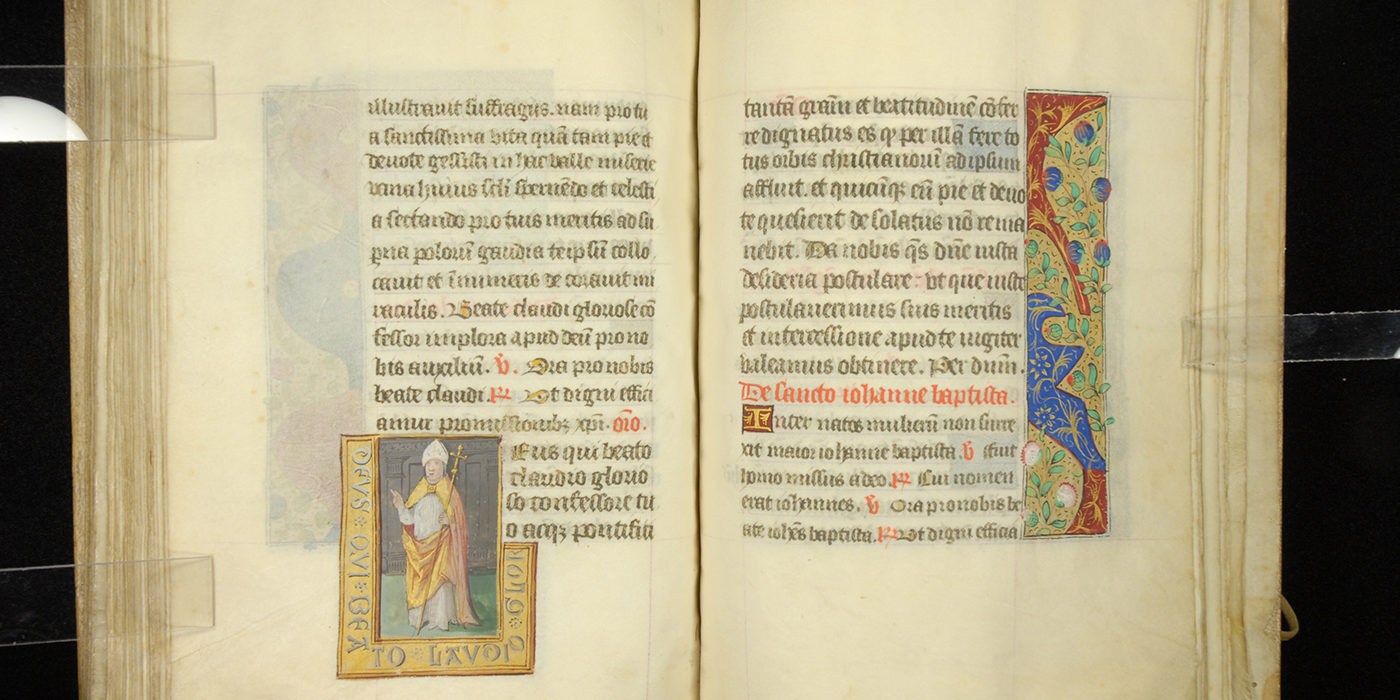 illustrauit suffragus. nam pro tu
a sanctissima vita quã tam pie et
deuote gessisti in hac valle miserie
vana huius scłi spernẽdo et celesti
a sectando pro tuis meritis ad su
pna polorũ gaudia teipsũ collo
cauit et ĩnumeris decorauit mi
raculis. Beate claudi gloriose cõ
fessor implora apud deũ pro no
bis auxiliũ. ℣. Ora pro nobis
beate claudi. ℟ Ut digni effici
amur promissionibꝫ xp̃i. or̃o.
Eus qui beato
claudio glorio
so confessore tu
o acqꝫ pontifici
DEVS QVI BEA
TO LAVDI
tantã graũ et beatitudinẽ cõfer
re dignatus es qꝫ per illã fere to
tus orbis christianorũ ad ipsum
affluit. et quicũqꝫ eũ pie et deuo
te quesierit desolatus nõ rema
nebit. Da nobis q̃s dñe iusta
desideria postulare: vt que iuste
postulauerimus suis meritis
et intercessione apud te iugiter
valeamus obtinere. Per dũm.
De sancto iohanne baptista.
Inter natos mulierũ non surre
xit maior iohanne baptista. ℣ fuit
homo missus a deo. ℟ Cui nomen
erat iohannes. ℣ Ora pro nobis be
ate iohẽs baptista. ℟ Ut digni efficia